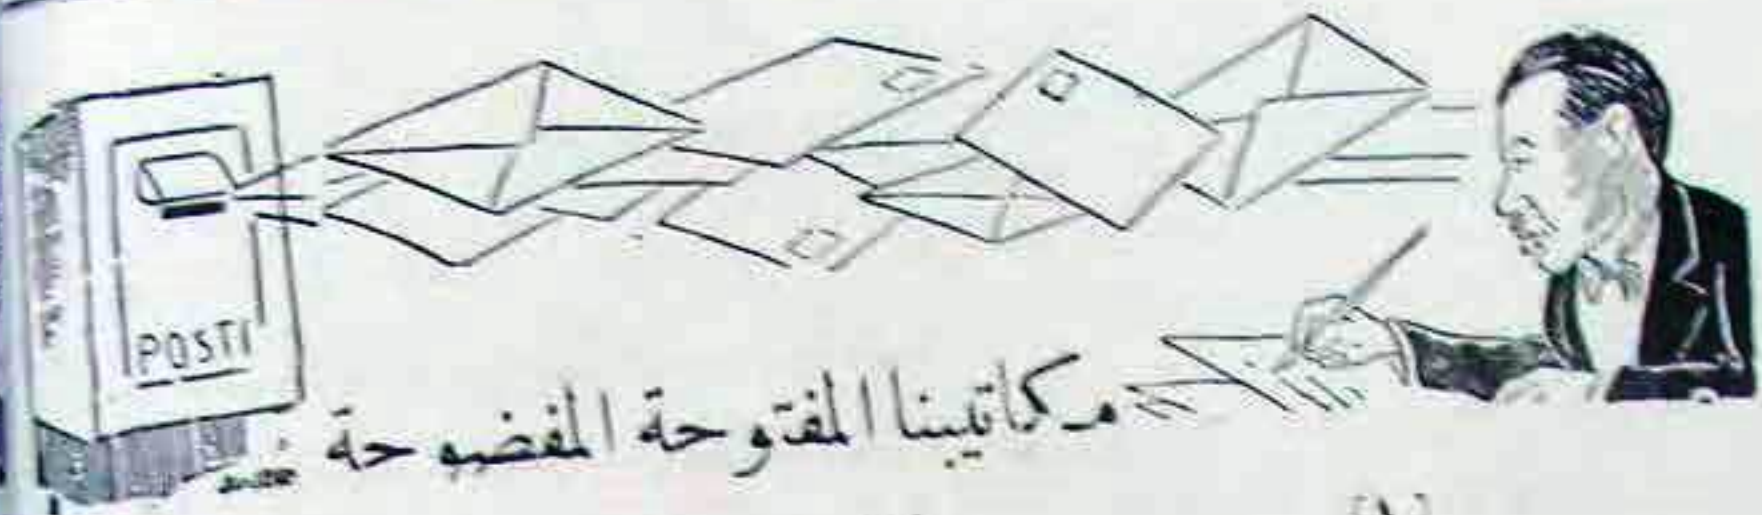 POSTI
مكاتيبنا المفتوحة المفضوحة